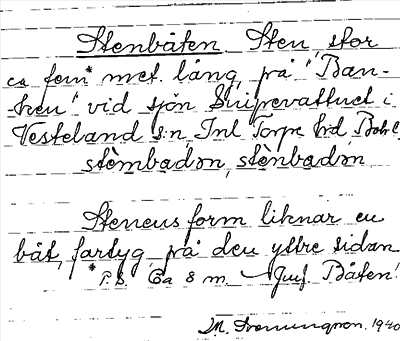 Stenbåten. Sten, stor
ca fem* met. lång, på "Ban-
ken" vid sjön Snipevattnet i
Vesteland s:n, Inl Torpe hd Bohl
stèmbadən, stènbadən
Stenens form liknar en
båt, fartyg, på den yttre sidan
* P.S. Ca 8 m. Jmf. Båten!
1940